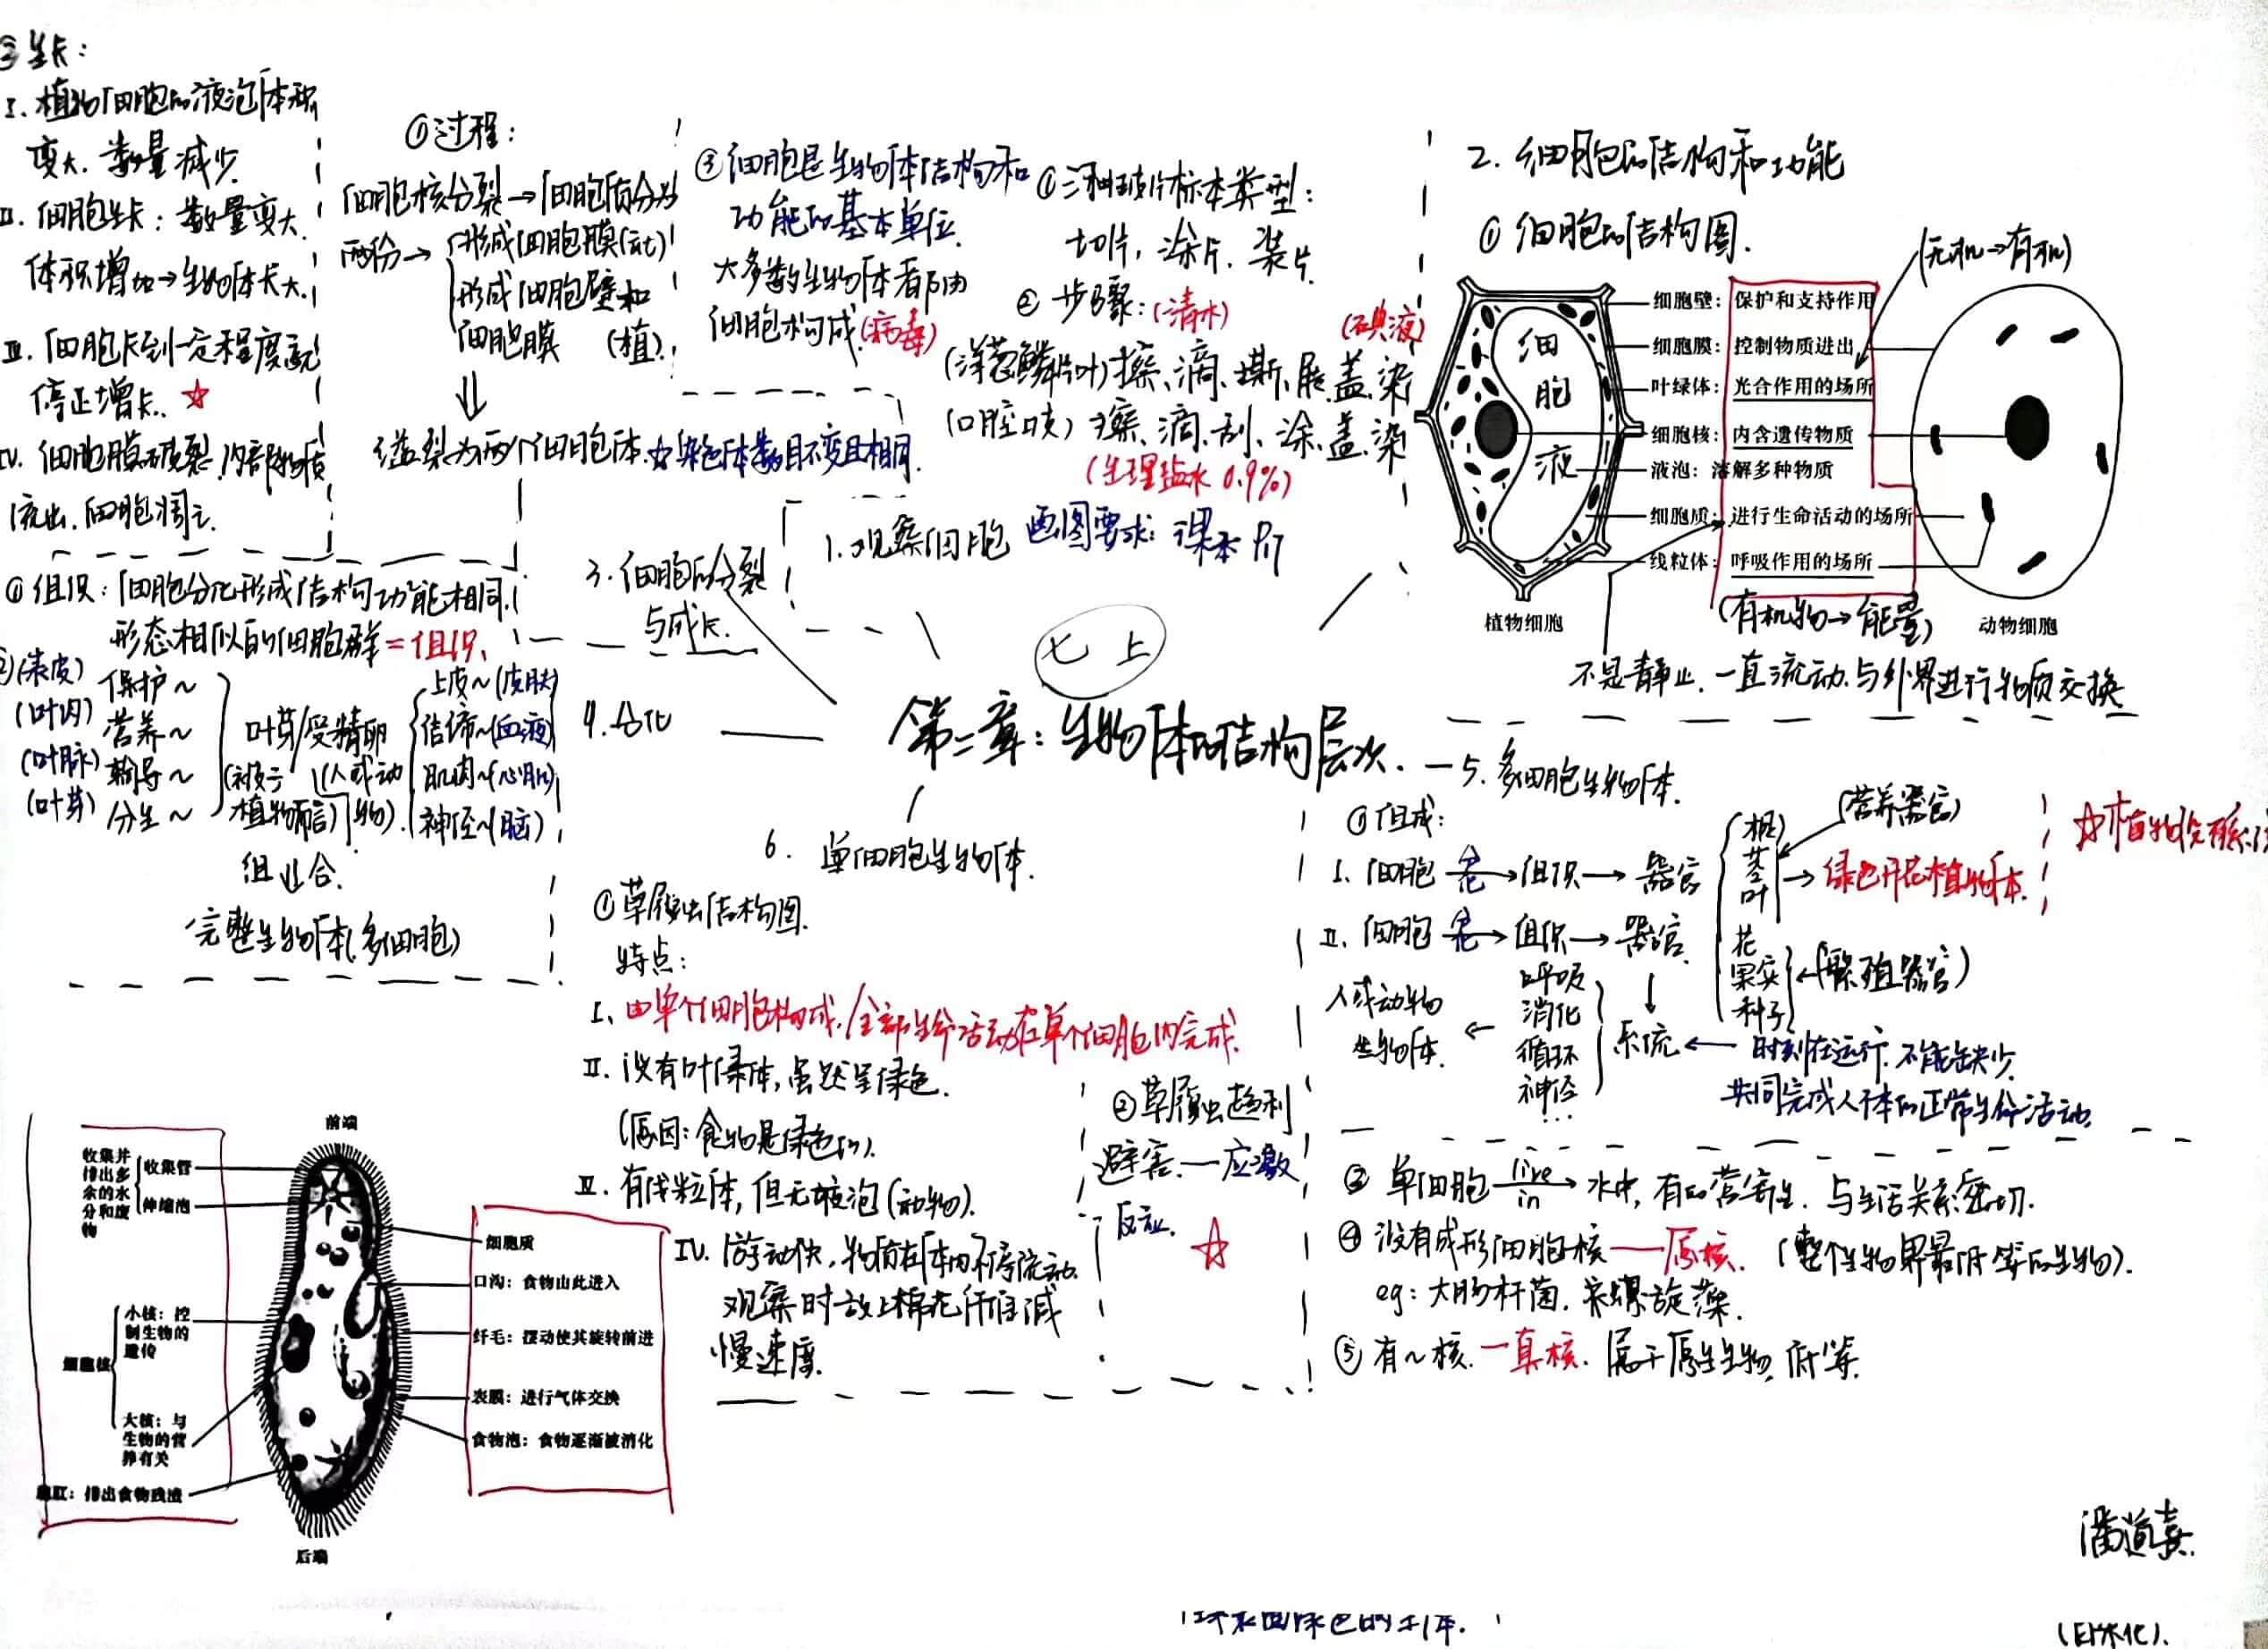 七上
第二章：生物体的结构层次.
1. 观察细胞 画图要求：课本 P17
①三种玻片标本类型：
切片，涂片，装片.
②步骤：(清水)
(碘液)
(洋葱鳞片叶)擦、滴、撕、展、盖、染
(口腔        )擦、滴、刮、涂、盖、染
(生理盐水 0.9%)
③细胞是生物体结构和
功能的基本单位.
大多数生物体都由
细胞构成.(病毒)
2. 细胞的结构和功能
①细胞的结构图.
(无机→有机)
细胞壁：保护和支持作用
细胞膜：控制物质进出
叶绿体：光合作用的场所
细胞核：内含遗传物质
液泡：溶解多种物质
细胞质：进行生命活动的场所
线粒体：呼吸作用的场所
细
胞
液
(有机物→能量)
植物细胞
动物细胞
不是静止，一直流动.与外界进行物质交换
3. 细胞的分裂
与成长.
①过程：
细胞核分裂→细胞质分为
两份→ 形成细胞膜(动)
形成细胞壁和
细胞膜 (植)
分裂为两个细胞体. 染色体数目不变且相同.
③生长：
I. 植物细胞的液泡体积
变大，数量减少.
II. 细胞生长：数量变大.
体积增加→生物体长大.
III. 细胞长到一定程度就
停止增长. ☆
IV. 细胞膜破裂，内部物质
流出，细胞凋亡.
4. 分化
①组织：细胞分化形成结构功能相同.
形态相似的细胞群=组织.
(表皮) 保护～
(叶肉) 营养～
(叶脉) 输导～
(叶芽) 分生～
叶芽/受精卵
(被子 (人或动
植物而言) 物).
上皮～(皮肤)
结缔～(血液)
肌肉～(心肌)
神经～(脑)
组合.
完整生物体(多细胞)
5. 多细胞生物体.
①组成：
I. 细胞→组织→器官
根
茎
叶
(营养器官)
→绿色开花植物体.
花
果实
种子
(繁殖器官)
☆植物没有系统
II. 细胞→组织→器官.
↓
系统
呼吸
消化
循环
神经
...
人或动物
生物体.
时刻在运行.不能缺少.
共同完成人体的正常生命活动.
6. 单细胞生物体.
①草履虫结构图.
特点：
I、由单个细胞构成，全部生命活动在单个细胞内完成.
II. 没有叶绿体，虽然呈绿色.
(原因：食物是绿色的).
III. 有线粒体，但无液泡(动物).
IV. 游动快，物质在体内不停流动.
观察时放上棉花纤维减
慢速度.
②草履虫趋利
避害.—应激
反应. ☆
③单细胞 live in→水中，有的营寄生，与生活关系密切.
④没有成形细胞核——原核. (整个生物界最低等的生物).
eg：大肠杆菌.        螺旋藻.
⑤有～核.—真核. 属于原生生物，低等.
前端
收集并
排出多
余的水
分和废
物
收集管
伸缩泡
细胞核
小核：控
制生物的
遗传
大核：与
生物的营
养有关
胞肛：排出食物残渣
后端
细胞质
口沟：食物由此进入
纤毛：摆动使其旋转前进
表膜：进行气体交换
食物泡：食物逐渐被消化
潘道熹.